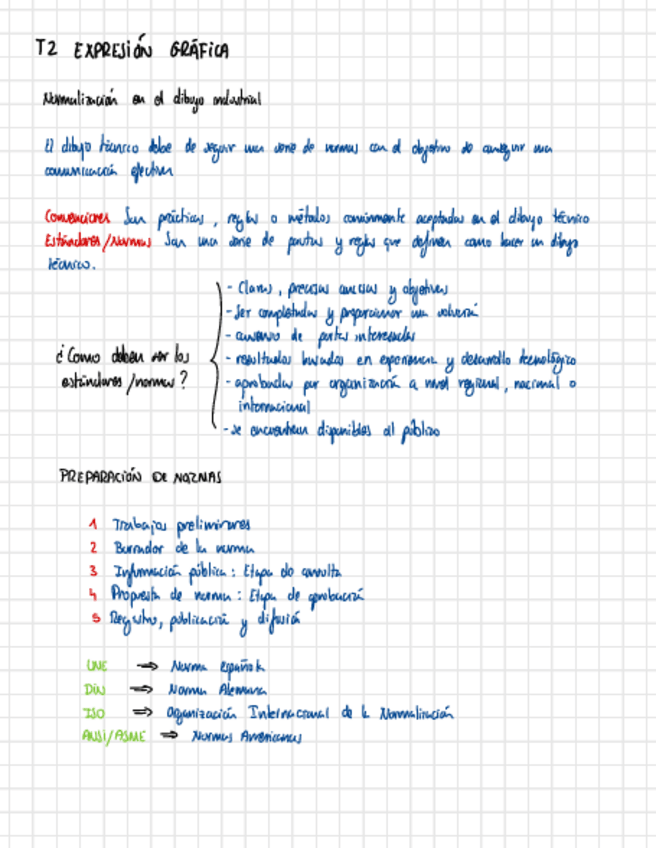 T2 EXPRESIÓN GRÁFICA
Normalización en el dibujo industrial
El dibujo técnico debe de seguir una serie de normas con el objetivo de conseguir una
comunicación efectiva
Convenciones Son prácticas, reglas o métodos comúnmente aceptadas en el dibujo técnico
Estándares/Normas Son una serie de pautas y reglas que definen como hacer un dibujo
técnico.
- Claras, precisas concisas y objetivas
- Ser completadas y proporcionar una
- consenso de partes interesadas
¿Como deben ser los
estándares/normas?
- resultados basados en experiencia y desarrollo tecnológico
- aprobadas por organización a nivel regional, nacional o
internacional
- se encuentran disponibles al público
PREPARACIÓN DE NORMAS
1 Trabajos preliminares
2 Borrador de la norma
3 Información pública: Etapa de consulta
4 Propuesta de norma: Etapa de aprobación
5 Registro, publicación y difusión
UNE ⇒ Norma española
DIN ⇒ Norma Alemana
ISO ⇒ Organización Internacional de la Normalización
ANSI/ASME ⇒ Normas Americanas